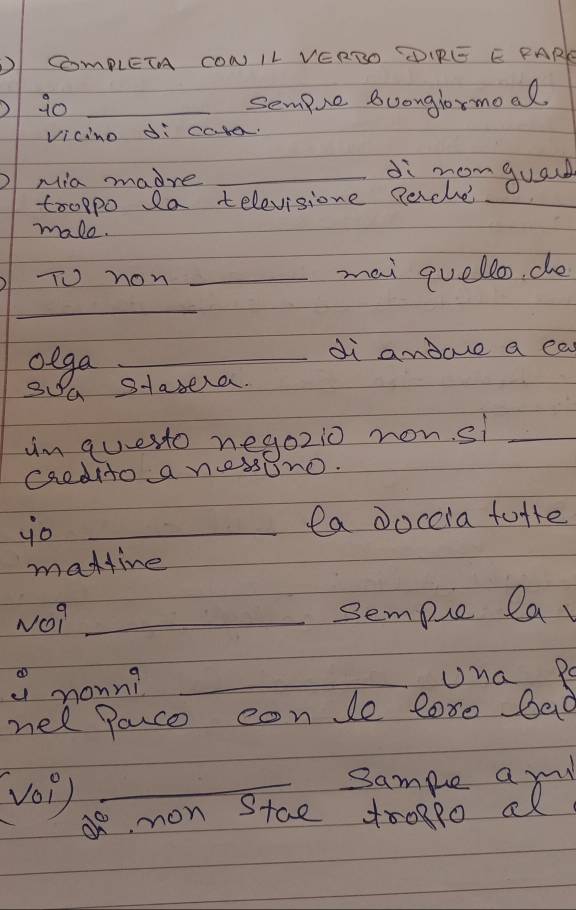 COMPLETA CON IL VERBO DIRE E FARE
io ________ sempre buongiorno al
vicino di casa.
Mia madre ________ di non guard
troppo la televisione perché ____
male.
TU non ________ mai quello che
____________
olga ____________ di andare a ca
sua stasera.
in questo negozio non si ____
credito a nessuno.
io ____________ la doccia tutte
mattine
Noi ____________ sempre la v
i nonni ____________ una pa
nel parco con le loro bad
(Voi) ____________ sampre a mi
di non stae troppo al